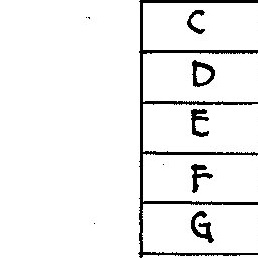 C
D
E
F
G